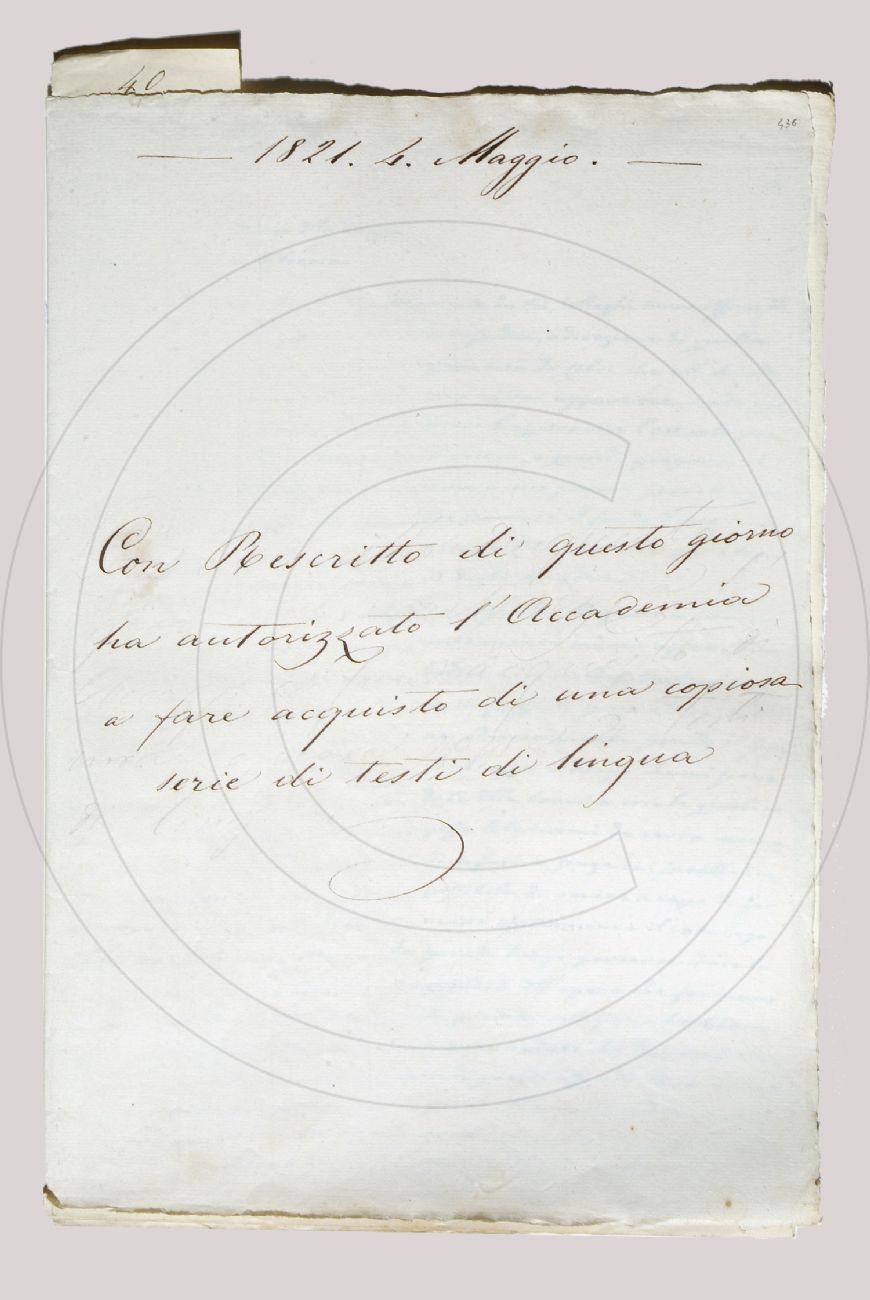 40
436
1821. 4. Maggio.
Con Rescritto di questo giorno
ha autorizzato l'Accademia
a fare acquisto di una copiosa
serie di testi di lingua